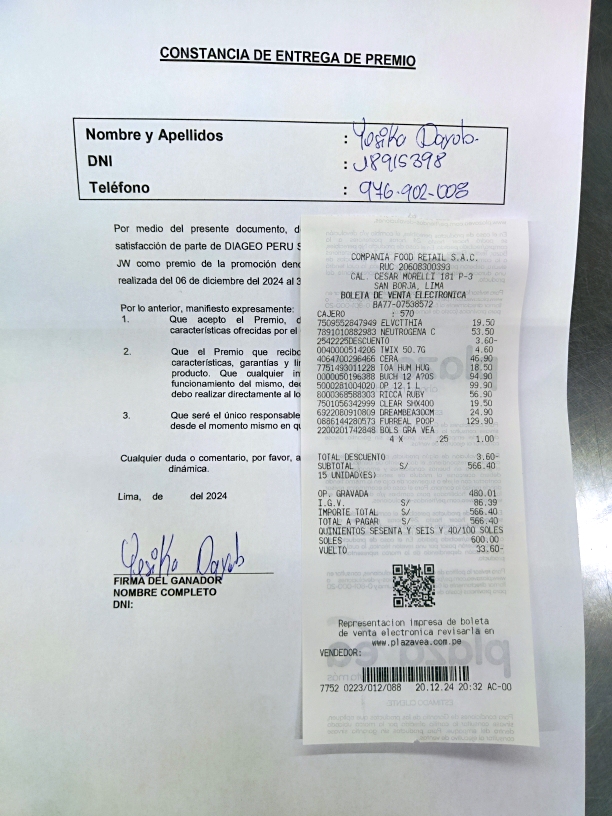 CONSTANCIA DE ENTREGA DE PREMIO
Nombre y Apellidos : Yesika
DNI : 18915398
Teléfono : 976-902-008
Por medio del presente documento, d
satisfacción de parte de DIAGEO PERU S
JW como premio de la promoción deno
realizada del 06 de diciembre del 2024 al 3
Por lo anterior, manifiesto expresamente:
1. Que acepto el Premio, d
características ofrecidas por el
2. Que el Premio que recibo
características, garantías y li
producto. Que cualquier in
funcionamiento del mismo, de
debo realizar directamente al lo
3. Que seré el único responsable
desde el momento mismo en qu
Cualquier duda o comentario, por favor, a
dinámica.
Lima, de del 2024
Yesika
FIRMA DEL GANADOR
NOMBRE COMPLETO
DNI:
COMPANIA FOOD RETAIL S.A.C.
RUC 20608300393
CAL. CESAR MORELLI 181 P-3
SAN BORJA, LIMA
BOLETA DE VENTA ELECTRONICA
BA77-07538572
CAJERO : 570
7509552847949 ELVCTTHIA 19.50
7891010882983 NEUTROGENA C 53.50
2542225DESCUENTO 3.60-
0040000514206 TWIX 50.7G 4.60
4064700296466 CERA 46.90
7751493011228 TOA HUM HUG 18.50
0000050196388 BUCH 12 A?OS 94.90
5000281004020 OP 12.1 L 99.90
8000368588303 RICCA RUBY 56.90
7501056342999 CLEAR SHX400 19.50
6922080910809 DREAMBEA30CM 24.90
0886144280573 FURREAL POOP 129.90
2200201742848 BOLS GRA VEA
4 X .25 1.00
TOTAL DESCUENTO 3.60-
SUBTOTAL S/ 566.40
15 UNIDAD(ES)
OP. GRAVADA 480.01
I.G.V. S/ 86.39
IMPORTE TOTAL S/ 566.40
TOTAL A PAGAR S/ 566.40
QUINIENTOS SESENTA Y SEIS Y 40/100 SOLES
SOLES 600.00
VUELTO 33.60-
Representacion impresa de boleta
de venta electronica revisarla en
www.plazavea.com.pe
VENDEDOR:
7752 0223/012/088 20.12.24 20:32 AC-00